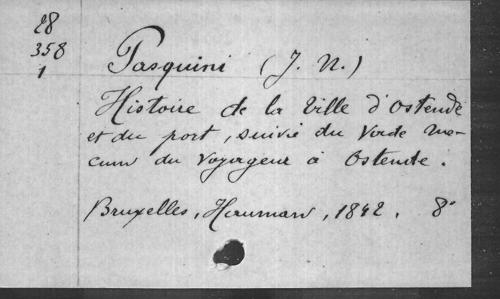 28
358
1
Pasquini (J. N.)
Histoire de la Ville d'Ostende
et du port, suivie du Vade me-
cum du Voyageur à Ostende.
Bruxelles, Hauman, 1842. 8°